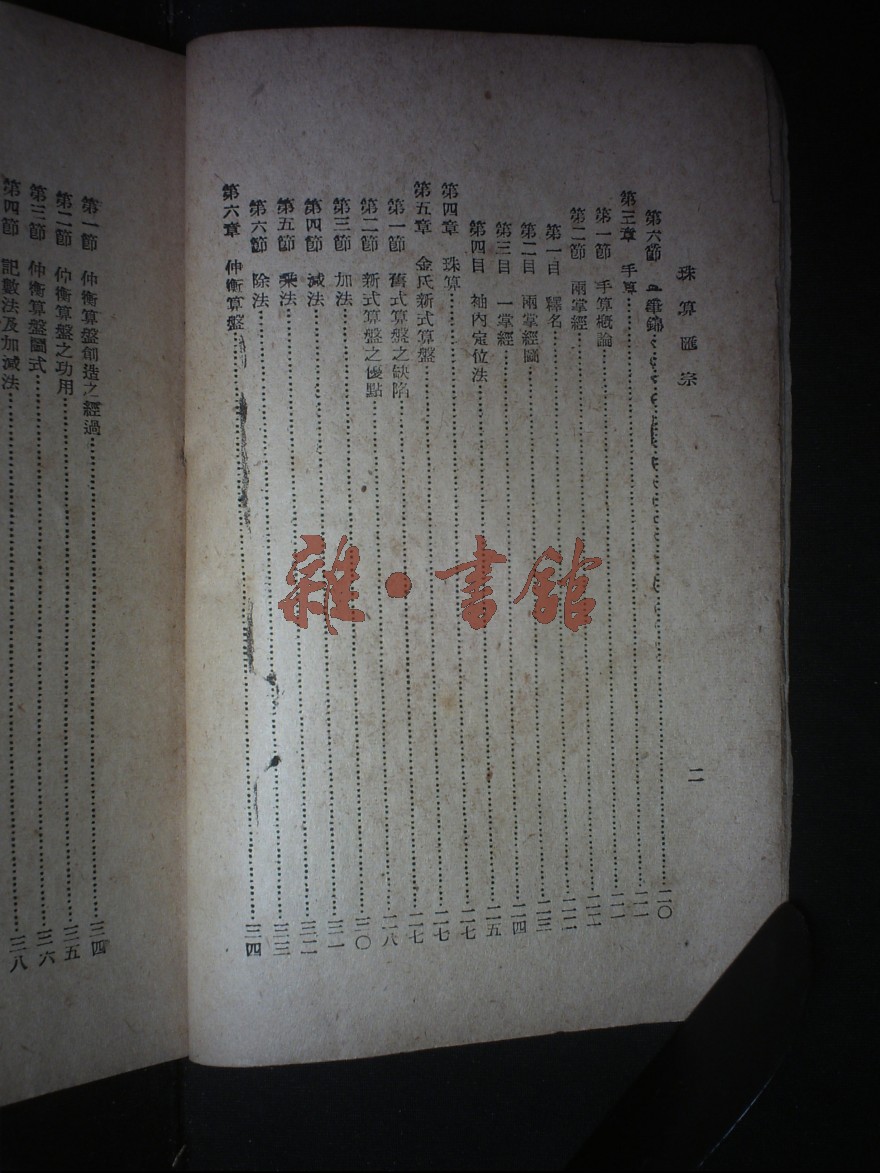 珠算匯宗 二
第六節 一筆錦……二〇
第三章 手算……二一
第一節 手算概論……二一
第二節 兩掌經……二二
第一目 釋名……二二
第二目 兩掌經圖……二三
第三目 一掌經……二四
第四目 袖內定位法……二五
第四章 珠算……二七
第五章 金氏新式算盤……二七
第一節 舊式算盤之缺陷……二七
第二節 新式算盤之優點……二八
第三節 加法……三〇
第四節 減法……三一
第五節 乘法……三二
第六節 除法……三三
第六章 仲衡算盤……三四
第一節 仲衡算盤創造之經過……三四
第二節 仲衡算盤之功用……三五
第三節 仲衡算盤圖式……三六
第四節 記數法及加減法……三八
雜·書館